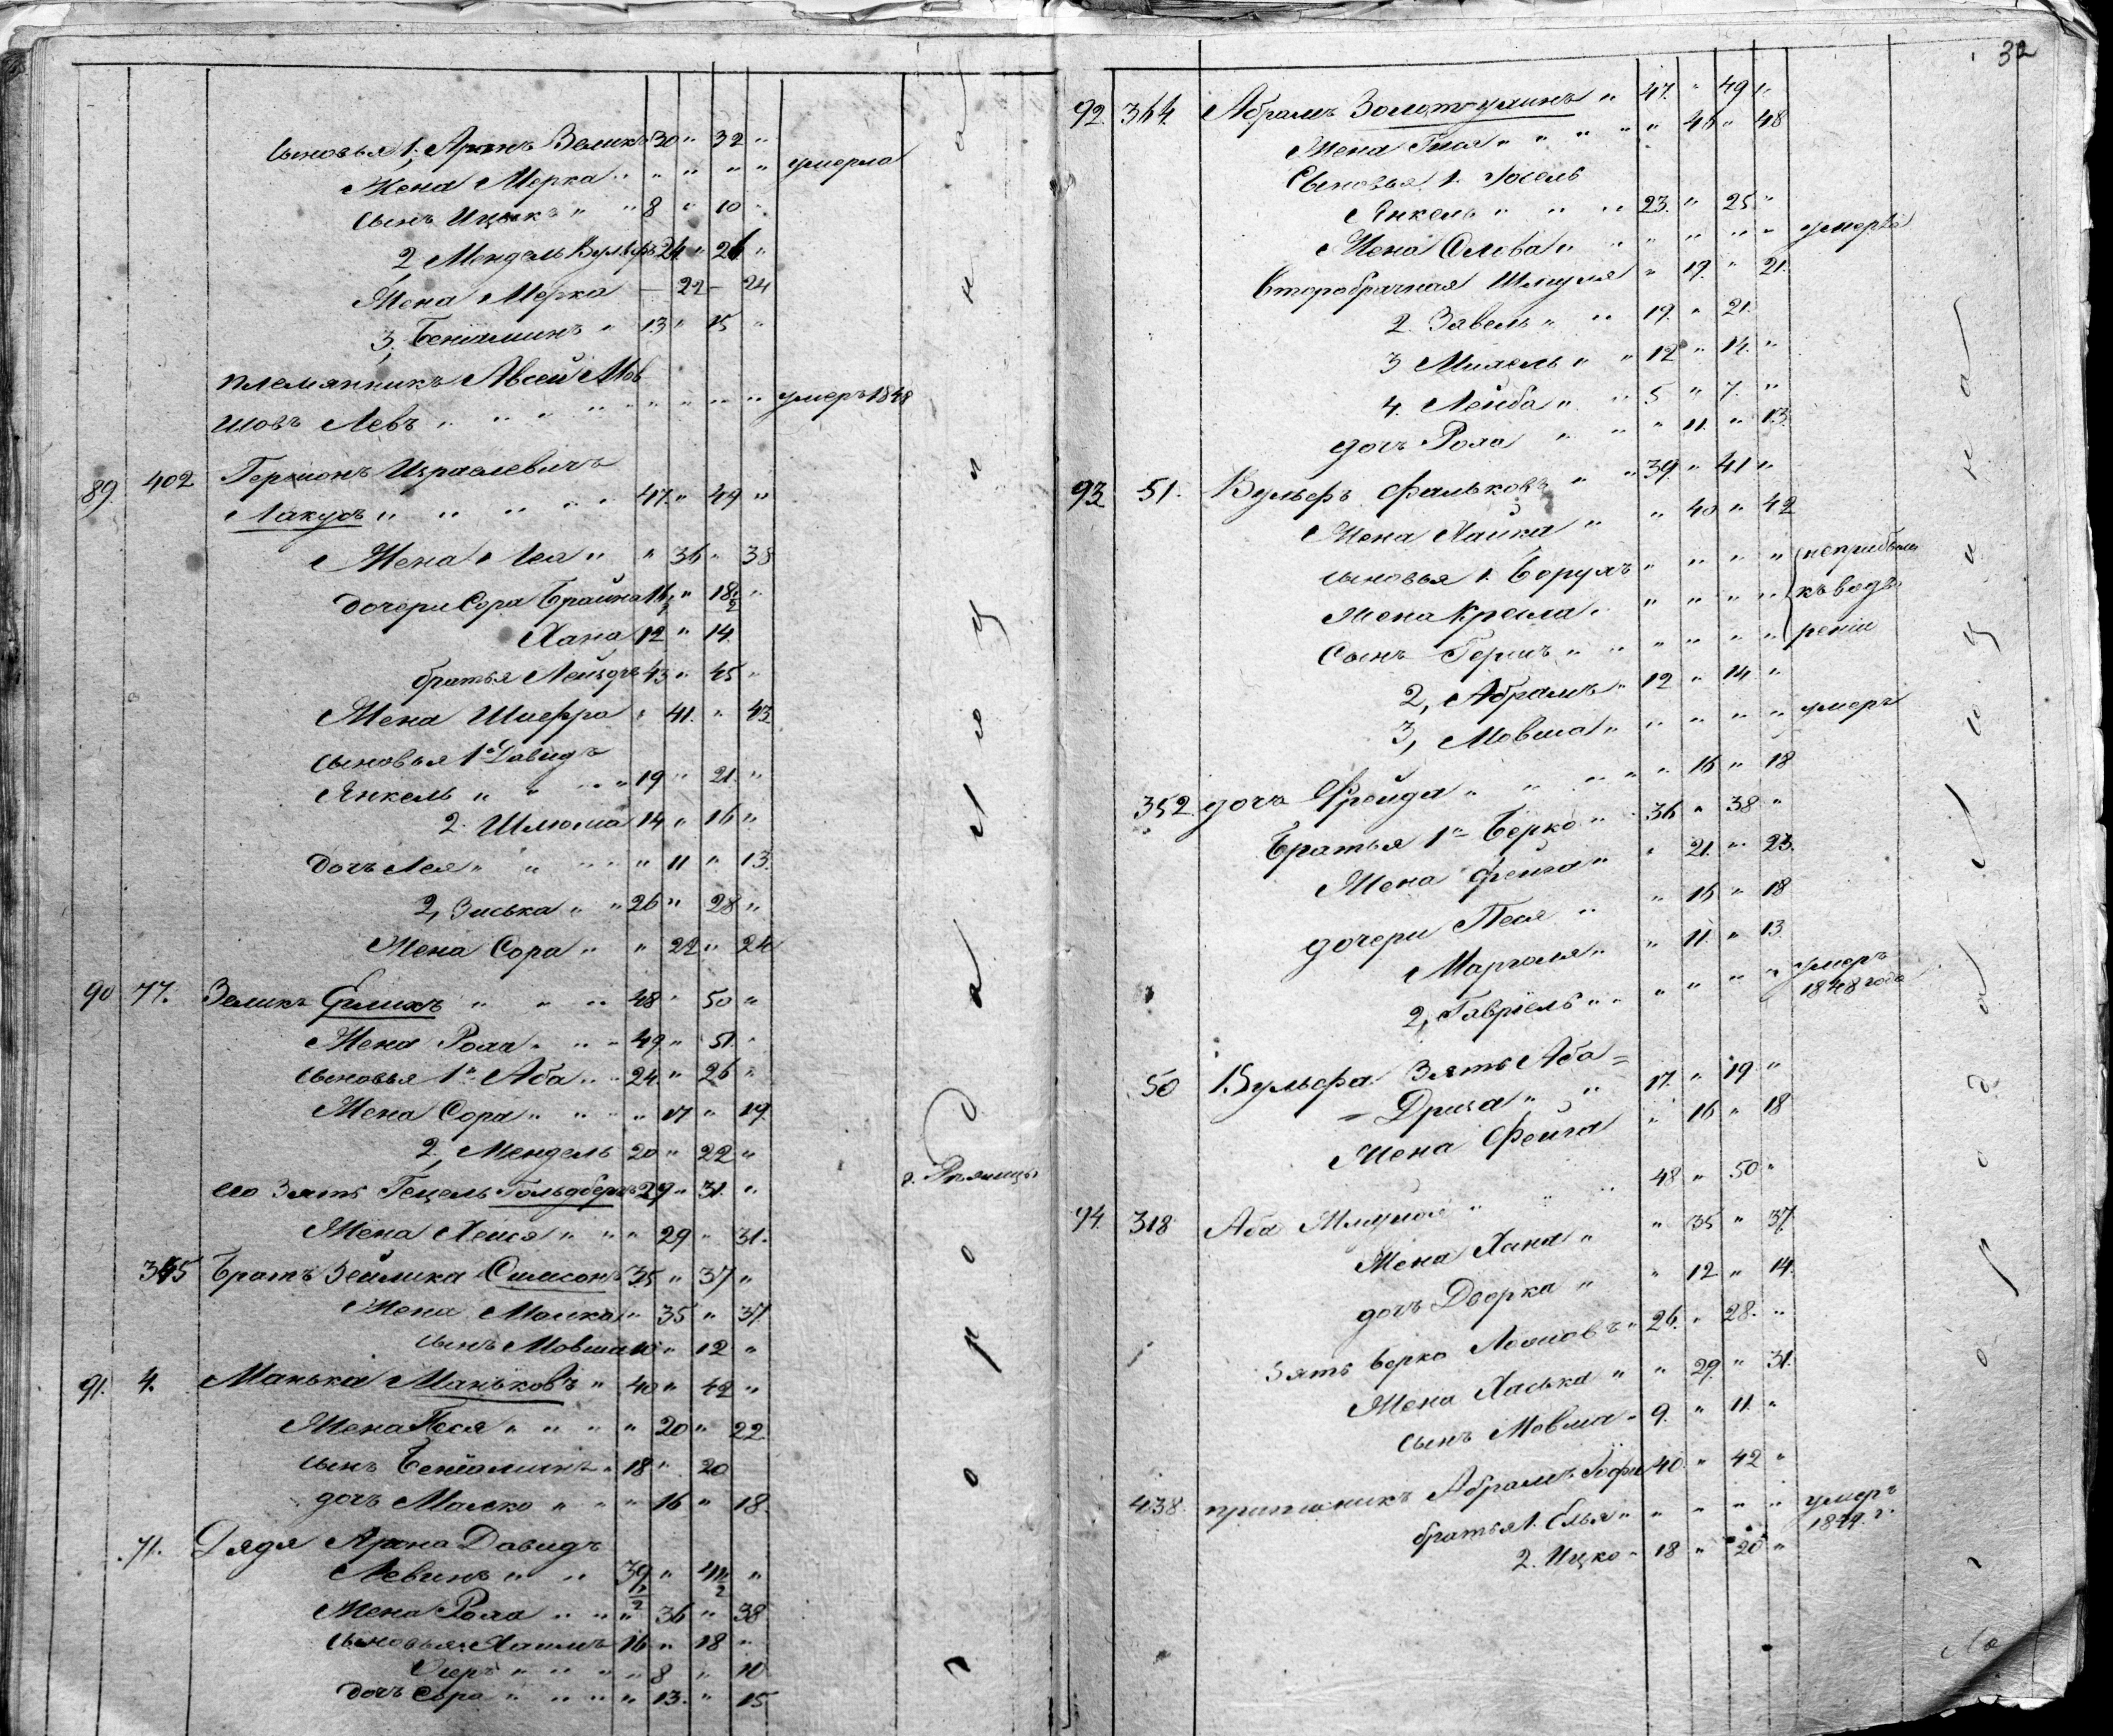 сыновья 1. Аронъ Зеликъ 30 " 32 "
Жена Мерка " " " " " умерла
сынъ Ицыкъ " " 8 " 10 "
2, Мендель Вульфъ 24 " 26 "
Жена Мерка — 22 — 24
3, Беніаминъ " 13 " 15 "
племянникъ Авсей Мов
шовъ Левъ " " " " " " " " умеръ 1848
89. 402 Гершонъ Израелевичъ
Лакусъ " " " " 47 " 49 "
Жена Лея " " 36 " 38
дочери Сора Брайна 16½ " 18½ "
Хана 12 " 14
братья Лейзеръ 43 " 45 "
Жена Шифра " 41 " 43
сыновья 1й Давидъ
Янкель " " " " 19 " 21 "
2. Шлюма 14 " 16 "
дочь Лея " " " " " 11 " 13
2, Зиська " " 26 " 28 "
Жена Сора " " 22 " 24
90 77. Зеликъ Ерлихъ " " " 48 " 50 "
Жена Роха " " " 49 " 51 "
сыновья 1й Аба " " 24 " 26 "
Жена Сора " " " " 17 " 19
2, Мендель 20 " 22 "
его Зять Гецель Гольдбергъ 29 " 31 "
Жена Хейся " " " 29 " 31.
345 Братъ Зеймика Симсонъ 35 " 37 "
Жена Малка " 35 " 37
сынъ Мовша 10 " 12 "
91. 4. Манька Маньковъ " 40 " 42 "
Жена Песя " " " " 20 " 22
сынъ Беніаминъ " 18 " 20
дочь Малко " " " 16 " 18
71. Дядя Арона Давидъ
Левинъ " " 39½ " 41½ "
Жена Роха " " " 36 " 38
сыновья Хаимъ 16 " 18 "
" " " " 8 " 10
дочь Сора " " " " 13. " 15
г.
32
92. 364. Абрамъ " 47. " 49 "
Жена Гися " " " " " 46 " 48
Сыновья 1. Іосель
Янкель " " " 23. " 25 "
Жена Слова " " " " " " умерла
Второбрачная " 19. " 21.
2. Завель " " 19. " 21.
3 Михель " " 12 " 14. "
4. Лейба " " 5 " 7. "
дочь Роха " " " 11. " 13.
93 51. Вульфъ Фальковъ " " 39. " 41 "
Жена Хайка " " 40 " 42
сыновья 1. Борухъ " " " " неприбыли
Жена Крейла " " " " " къ водво
Сынъ Гершъ " " " " " " реніи
2, Абрамъ " 12 " 14 "
3, Мовша " " " " " умеръ
дочь Фрейда " " " " " 16 " 18
352. Братья 1й Берко " 36 " 38 "
Жена Фейга " " 21. " 23.
дочери Песя " " 16 " 18
Маргася " " 11. " 13
2, Гавріель " " " " " " умеръ
1848 года
50 Вульфа Зять Аба=
= " " 17. " 19 "
Жена Фейга " 16 " 18
94. 318 Аба " " " 48 " 50 "
Жена Хана " " 35 " 37
дочь Дворка " " 12 " 14.
Зять Берко " 26. " 28. "
Жена Хаська " " 29. " 31.
сынъ Мовша " 9. " 11. "
438. Абрамъ 40. " 42 "
братья 1. Елья " " " " " умеръ
1849 г.
2. Ицко " 18 " 20 "